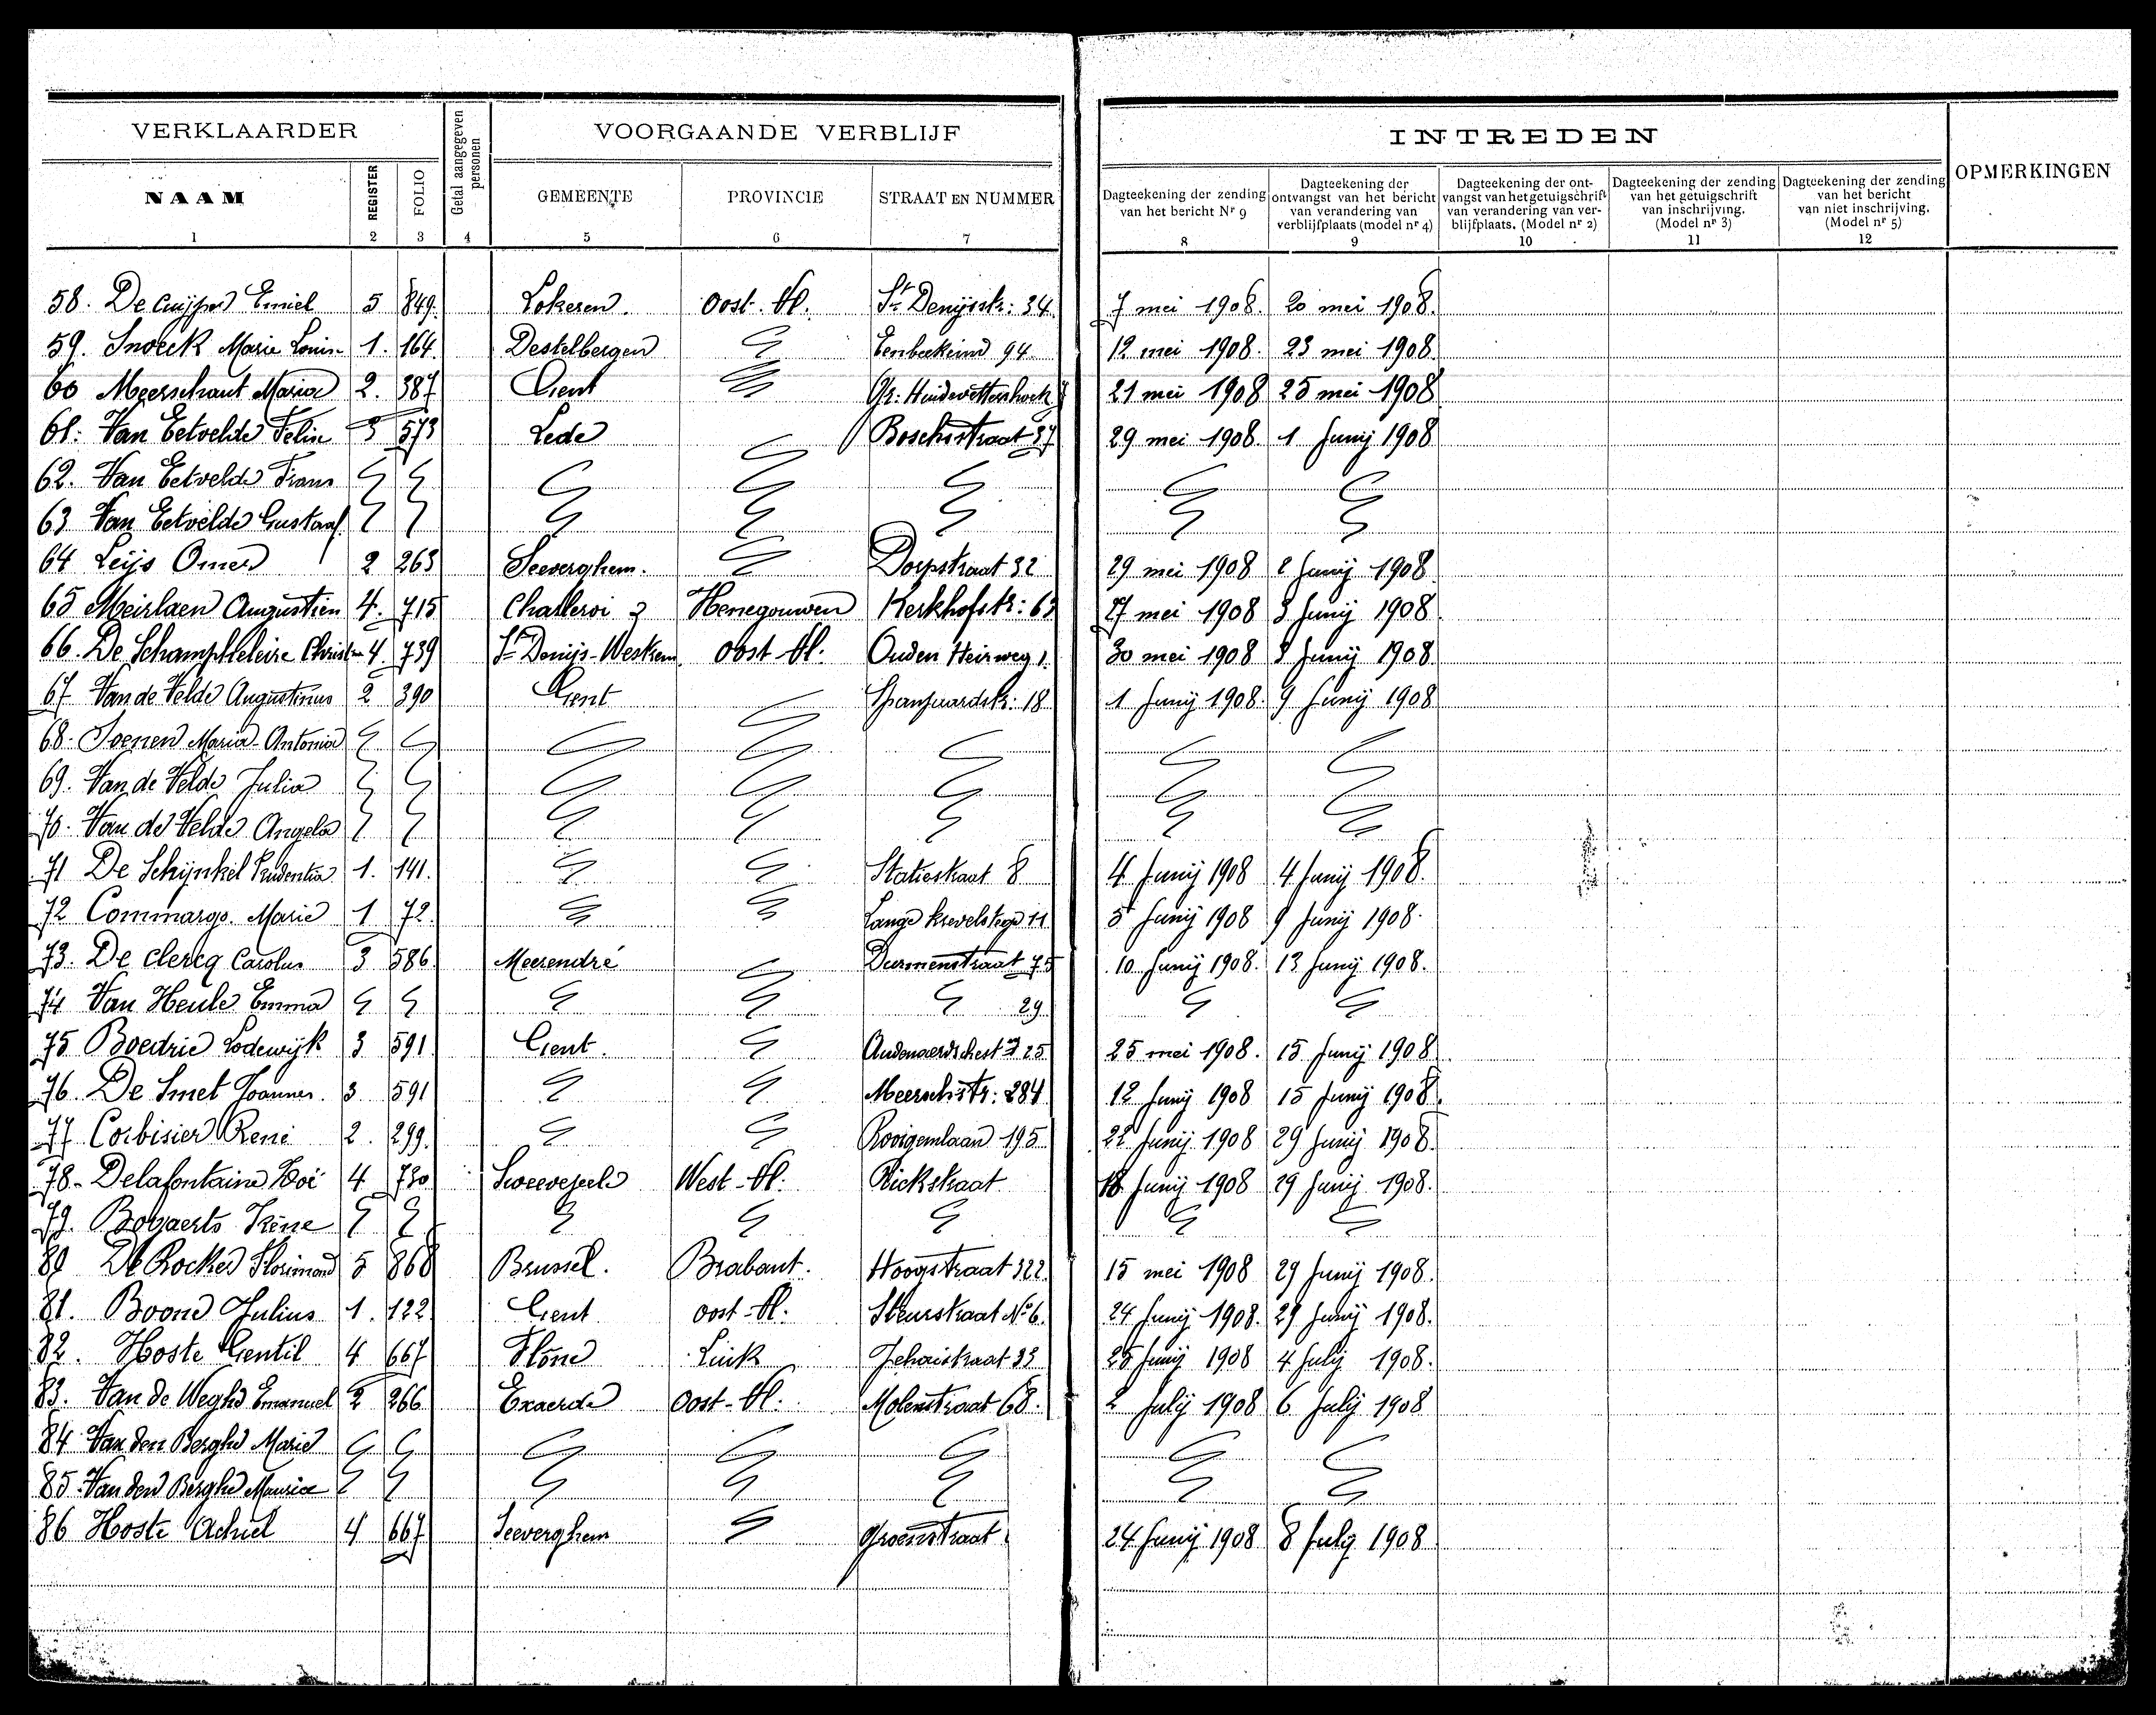 VERKLAARDER Getal aangegeven personen VOORGAANDE VERBLIJF INTREDEN OPMERKINGEN
NAAM REGISTER FOLIO GEMEENTE PROVINCIE STRAAT EN NUMMER Dagteekening der zending van het bericht Nr 9 Dagteekening der ontvangst van het bericht van verandering van verblijfplaats (model nr 4) Dagteekening der ontvangst van het getuigschrift van verandering van verblijfplaats. (Model nr 2) Dagteekening der zending van het getuigschrift van inschrijving. (Model nr 3) Dagteekening der zending van het bericht van niet inschrijving. (Model nr 5)
1 2 3 4 5 6 7 8 9 10 11 12
58. De Cuyper Emiel 5 849. Lokeren. Oost-Vl. St Denijsstr: 34 7 mei 1908. 20 mei 1908.
59. Snoeck Marie Louis 1. 164. Destelbergen Eenbeekeind 94 12 mei 1908. 23 mei 1908
60 Meerschaut Maria 2. 387 Gent Gr: Huidevettershoek 21 mei 1908 25 mei 1908
61. Van Eetvelde Felix 3 573 Lede Boschstraat 37 29 mei 1908. 1 Junij 1908
62. Van Eetvelde Frans
63 Van Eetvelde Gustaaf
64 Leijs Omer 2 263 Seeverghem. Dorpstraat 32 29 mei 1908 2 Junij 1908
65 Meirlaen Augustien 4. 715 Challeroi Henegouwen Kerkhofstr: 63 27 mei 1908 3 Junij 1908
66. De Schampheleire 4. 739 St Denijs-Westrem Oost-Vl. Ouden Heirweg 1 30 mei 1908 8 Junij 1908
67 Van de Velde Augustinus 2 390 Gent Spanjaardstr: 18 1 Junij 1908. 9 Junij 1908
68. Soenen Maria-Antonia
69. Van de Velde Julia
70. Van de Velde Angela
71 De Schijnkel Prudentia 1. 141. Statiestraat 8 4 Junij 1908 4 Junij 1908.
72 Commargo. Marie 1 72. Lange 11 5 Junij 1908 9 Junij 1908.
73. De Clercq Carolus 3 586 Meerendré Durmenstraat 75 10 Junij 1908. 13 Junij 1908.
74 Van Heule Emma 29
75 Boedrie Lodewijk 3 591. Gent. 25 25 mei 1908. 15 Junij 1908
76. De Smet Joannes. 3 591 Meerschstr: 284 12 Junij 1908 15 Junij 1908.
77 Corbisier René 2. 299. Rooigemlaan 195 22 Junij 1908 29 Junij 1908.
78. Delafontaine 4 730 Sweevezeele West-Vl. 18 Junij 1908 29 Junij 1908.
79. Bogaerts Irène
80 De Rocker Florimond 5 868 Brussel. Brabant. Hoogstraat 322 15 mei 1908 29 Junij 1908.
81. Boone Julius 1. 122 Gent Oost-Vl. Steurstraat No 6. 24 Junij 1908. 29 Junij 1908.
82. Hoste Gentil 4 667 Flône Luik 33 25 Junij 1908 4 Julij 1908.
83. Van de Weghe Emanuel 2 266 Exaerde Oost-Vl. Molenstraat 68. 2 Julij 1908 6 Julij 1908
84 Van den Berghe Marie
85. Van den Berghe Maurice
86 Hoste Achiel 4 667 Seeverghem Groenstraat 24 Junij 1908 8 July 1908